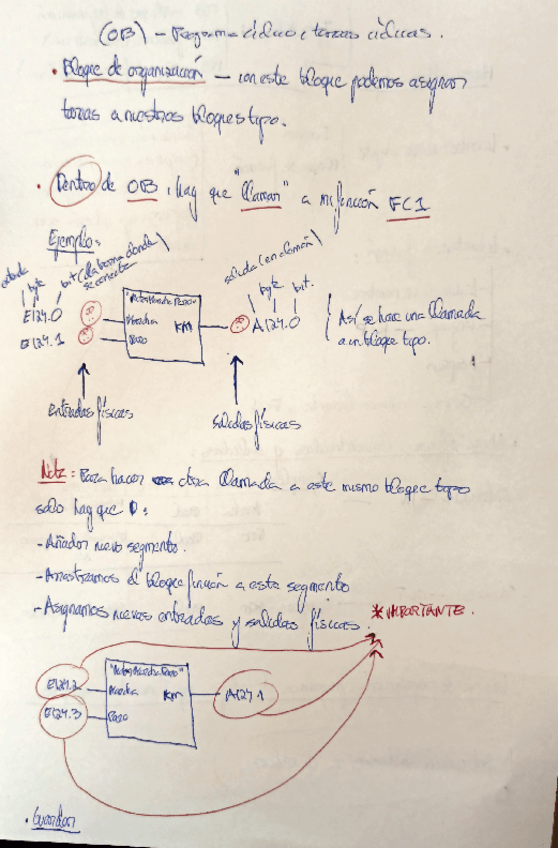 (OB) - Programa cíclico, tareas cíclicas.
• Bloque de organización - con este bloque podemos asignar
tareas a nuestros bloques tipo.
• Dentro de OB, hay que "llamar" a mi función FC1
Ejemplo:
entrada
byte
bit (la borna donde se conecta)
salida (en alemán)
byte
bit.
E124.0
E124.1
Marcha
Paro
KM
A124.0
Así se hace una llamada
a un bloque tipo.
entradas físicas
salidas físicas
Nota: Para hacer otra llamada a este mismo bloque tipo
solo hay que:
- Añador nuevo segmento.
- Arrastramos el bloque función a este segmento
- Asignamos nuevas entradas y salidas físicas.
* IMPORTANTE.
E124.2
E124.3
Marcha
Paro
KM
A124.1
• Guardar